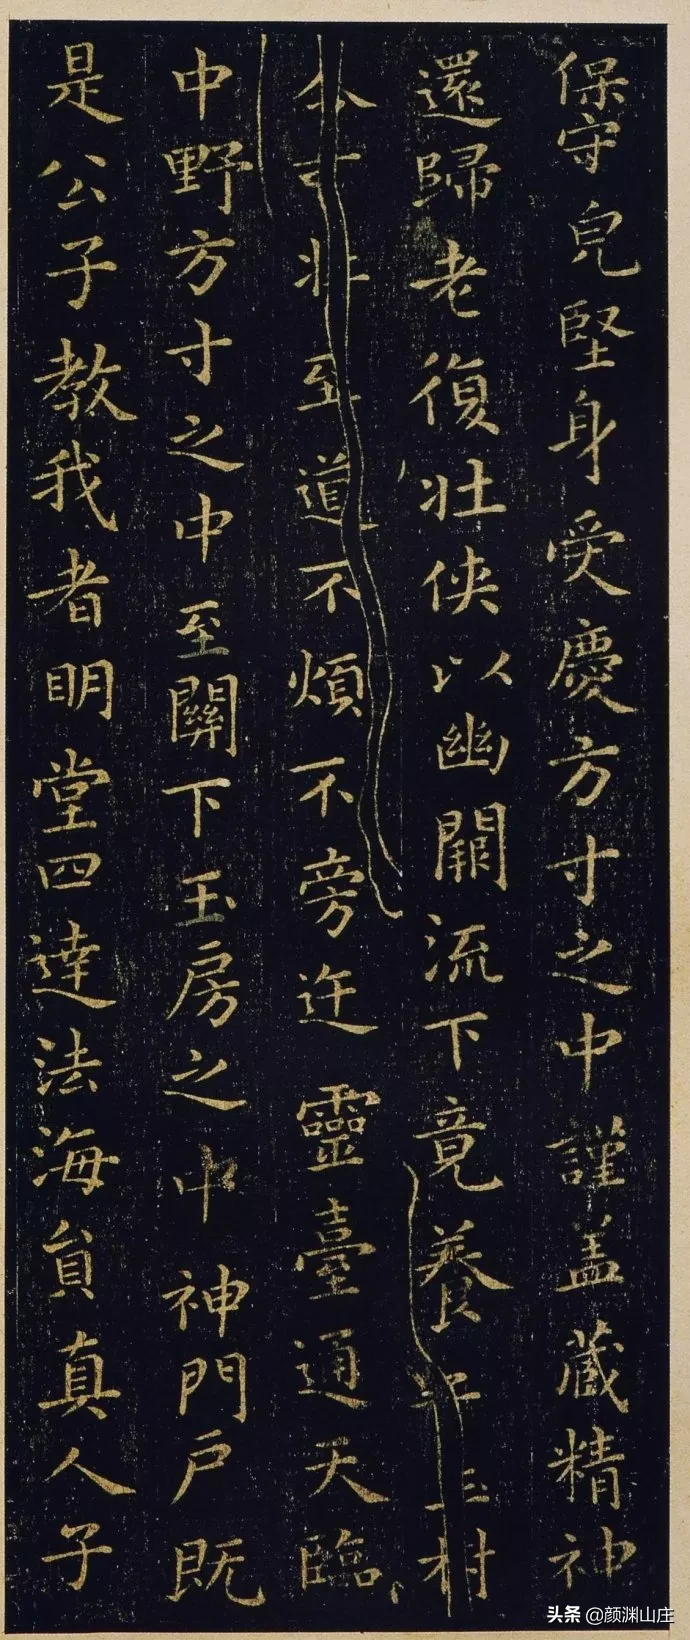 保守皃堅身受慶方寸之中謹盖藏精神
還歸老復壮侠以幽闕流下竟養子玉树
令可壮至道不煩不旁迕靈臺通天臨
中野方寸之中至關下玉房之中神門户既
是公子教我者明堂四達法海員真人子
头条 @颜渊山庄